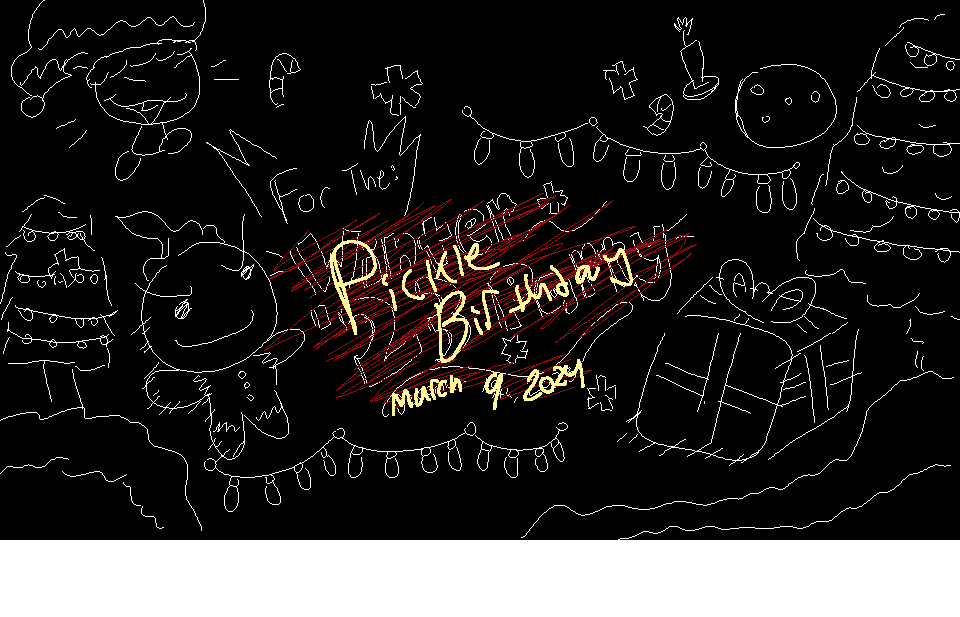 For The:
Winter
Pickle
Birthday
March 9 2024